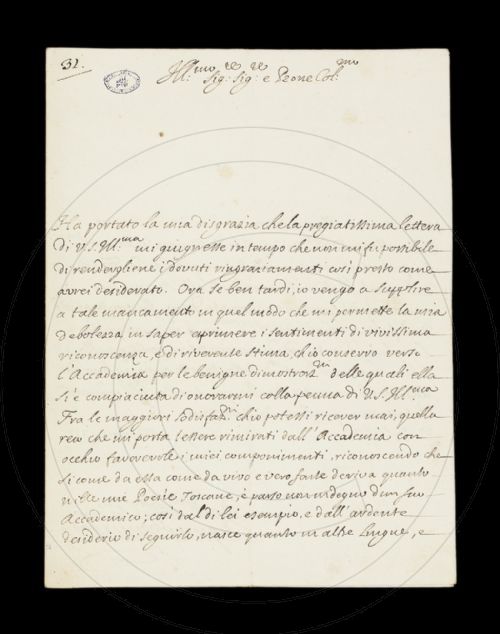 32.
Ill:mo Sig:re Sig:re e Prone Col:mo
Ha portato la mia disgrazia che la pregiatissima lettera
di V.S. Ill:ma mi giugnesse in tempo che non mi fù possibile
di rendergliene i dovuti ringraziamenti così presto come
avrei desiderato. Ora se ben tardi, io vengo a supplire
a tale mancamento in quel modo che mi permette la mia
debolezza in saper esprimere i sentimenti di vivissima
riconoscenza, e di riverente stima, ch'io conservo verso
l'Accademia per le benigne dimostraz:ni delle quali ella
si è compiaciuta di onorarmi colla penna di V.S. Ill:ma
Fra le maggiori sodisfaz:ni ch'io potessi ricever mai, quella
reco che mi porta l'essere rimirati dall'Accademia con
occhio favorevole i miei componimenti, riconoscendo che
sì come da essa come da vivo e vero fonte deriva quanto
nelle mie Poesie Toscane, è parto non indegno d'un suo
Accademico; così dal di lei esempio, e dall'ardente
desiderio di seguirlo, nasce quanto in altre lingue, e